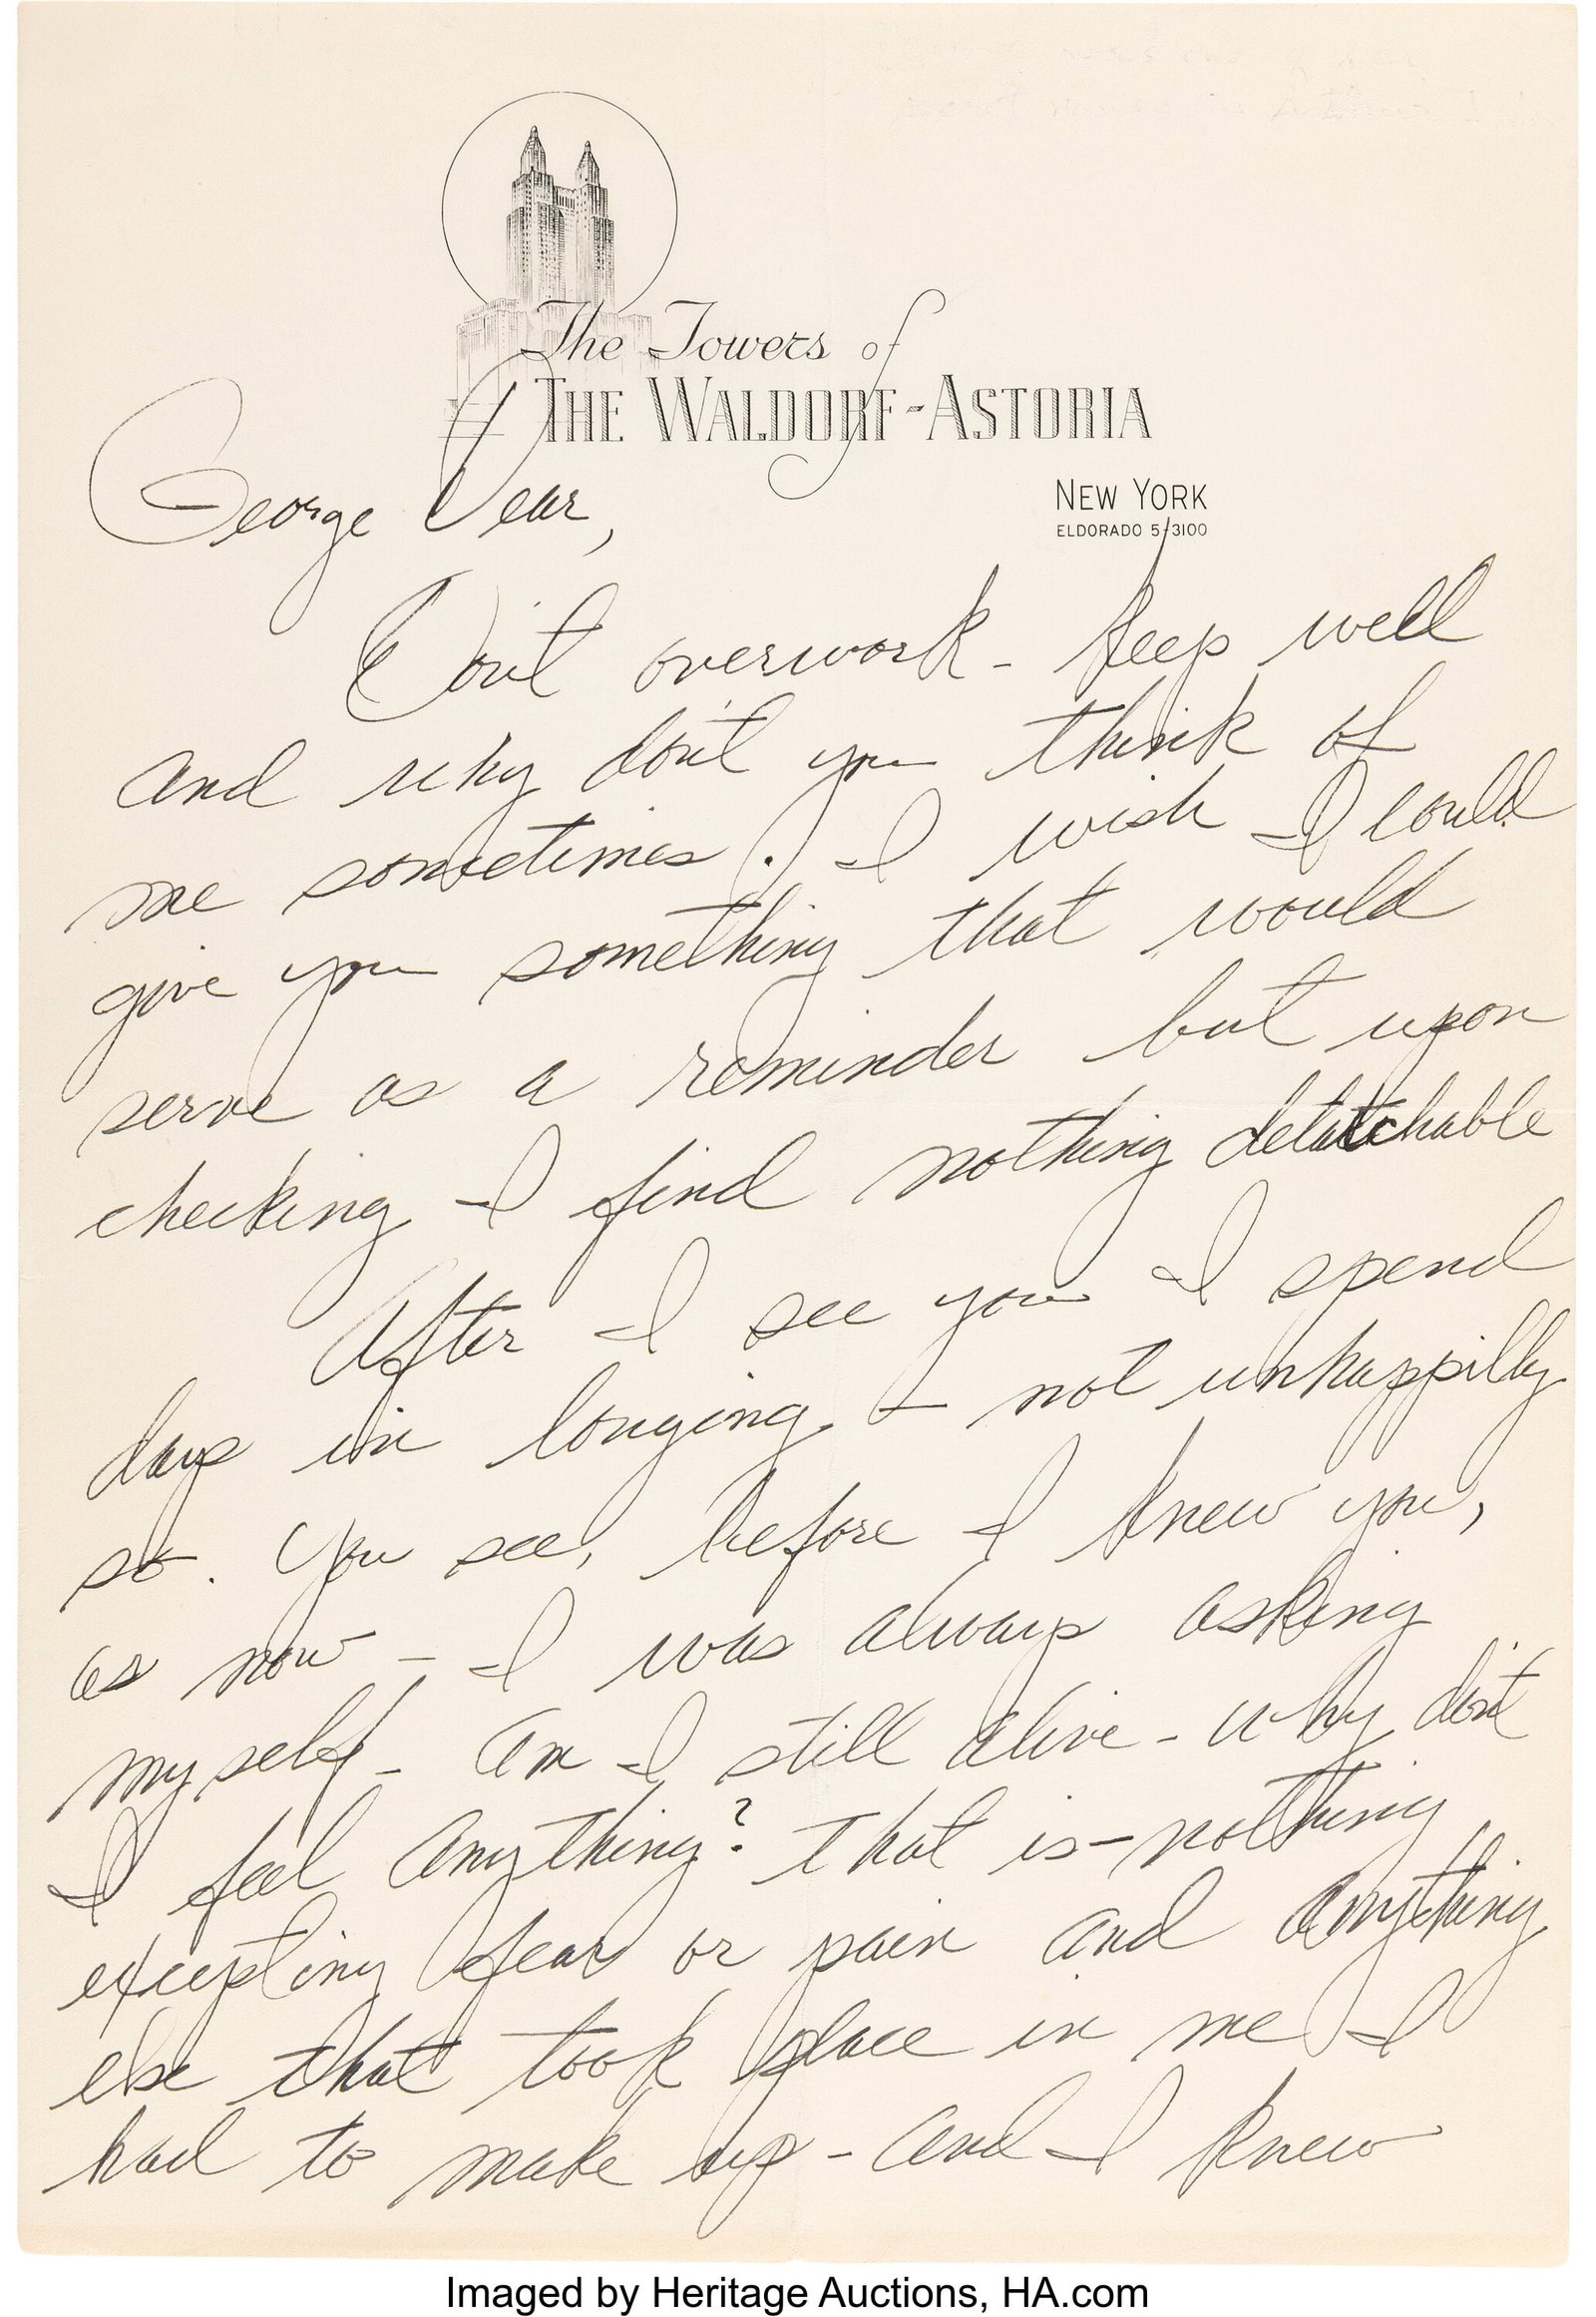 The Towers of
THE WALDORF-ASTORIA
NEW YORK
ELDORADO 5-3100
George Dear,
Don't overwork - keep well
and why don't you think of
me sometimes. I wish I could
give you something that would
serve as a reminder but upon
checking I find nothing detatchable
After I see you I spend
days in longing - not unhappilly
so. You see, before I knew you,
as now - I was always asking
myself - am I still alive - why don't
I feel anything? that is - nothing
excepting fear or pain and anything
else that took place in me I
had to make up - and I knew
Imaged by Heritage Auctions, HA.com